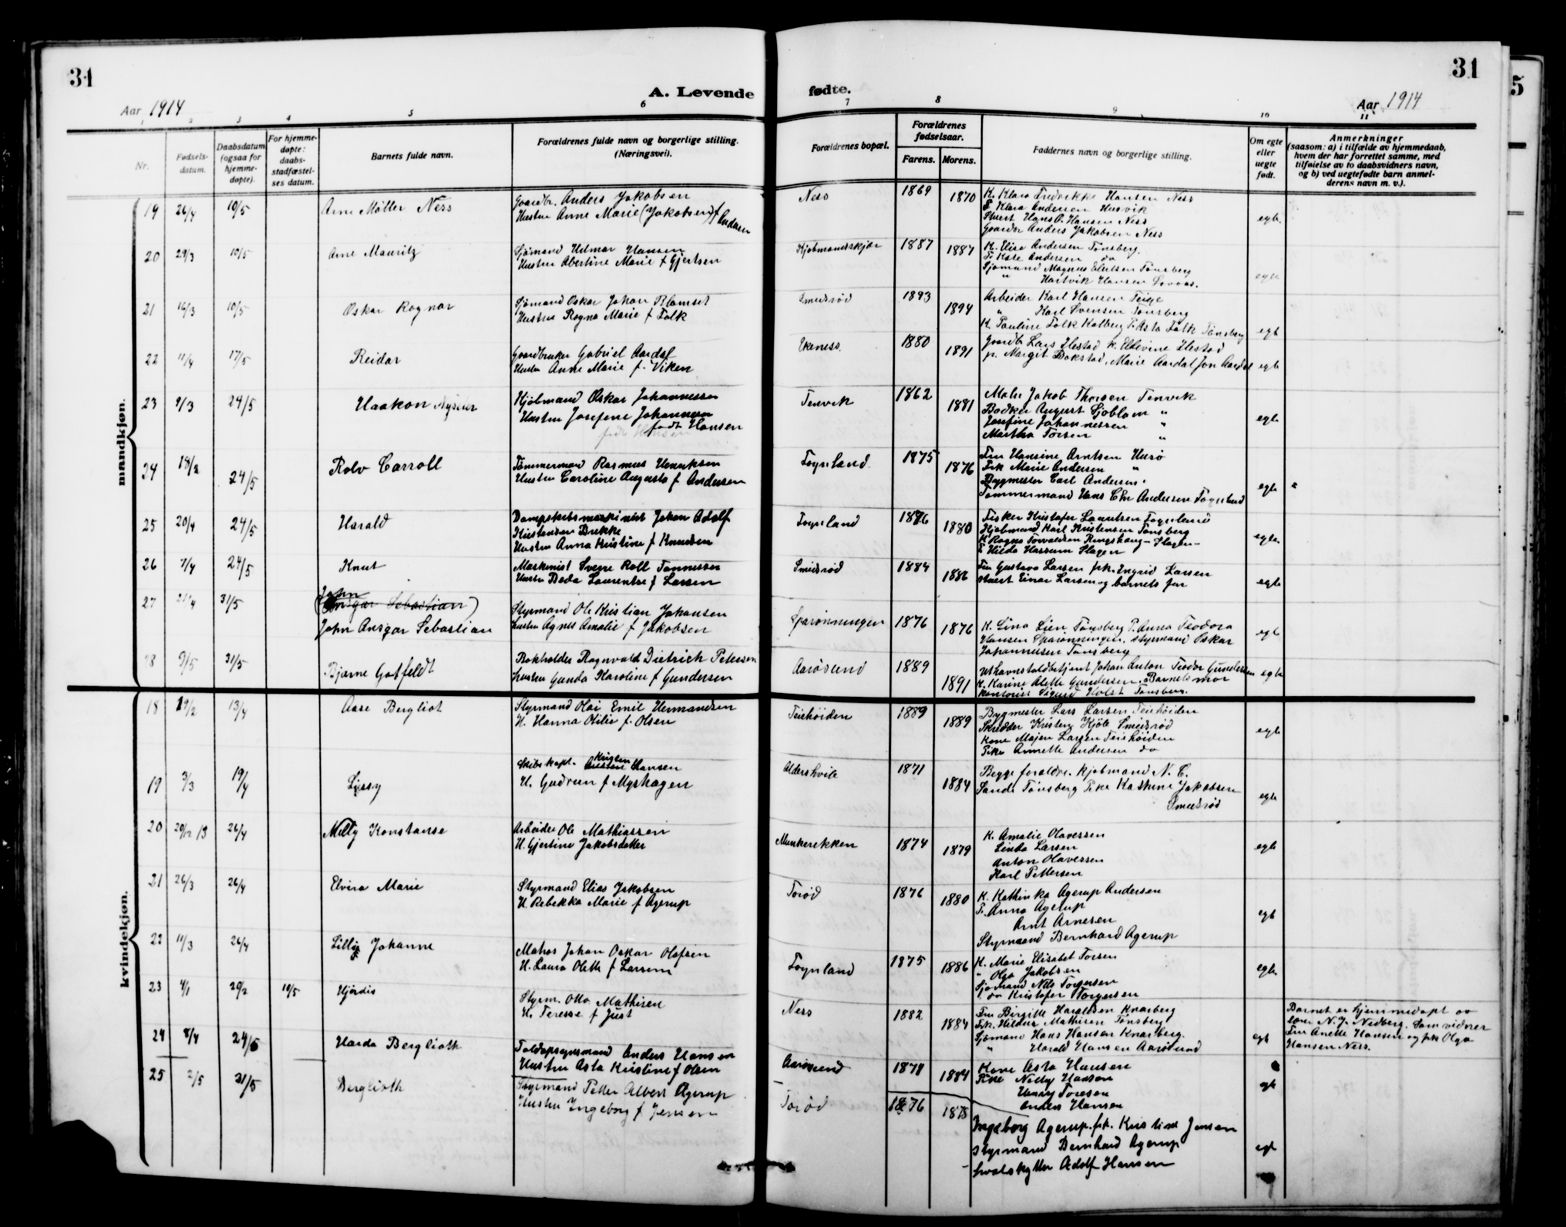 34
31
A. Levende fødte.
Aar 1914
Aar 1914
1 2 3 4 5 6 7 8 9 10 11
Nr.
Fødsels-
datum.
Daabsdatum
(ogsaa for
hjemme-
døpte).
For hjemme-
døpte:
daabs-
stadfæstel-
ses datum.
Barnets fulde navn.
Forældrenes fulde navn og borgerlige stilling.
(Næringsvei).
Forældrenes bopæl.
Forældrenes
fødselsaar.
Farens. Morens.
Faddernes navn og borgerlige stilling.
Om egte
eller
uegte
født.
Anmerkninger
(saasom: a) i tilfælde av hjemmedaab,
hvem der har forrettet samme, med
tilføielse av to daabsvidners navn,
og b) ved uegtefødte barn anmel-
derens navn m. v.).
mandkjøn.
19 26/4 10/5 Arne Møller Ness
Gaardbr. Anders Jakobsen
Hustru Anne Marie (Jakobsen) f Andersen
Ness 1869 1870
K. Klara Fredrikke Hansen Ness
F. Klara Andersen Husvik
Hans A. Hansen Ness
Gaardbr Anders Jakobsen Ness
egte
20 29/3 10/5 Arne Mauritz
Sjømand Hilmar Hansen
Hustru Abertine Marie f Gjertsen
Kjøbmandskjær 1887 1887
K. Elise Andersen Tønsberg.
F. Kate Andersen do
Sjømand Magnus Tønsberg
" Hartvik Hansen
egte
21 16/3 10/5 Oskar Ragnar
Sjømand Oskar Johan
Hustru Ragna Marie f Falk
Smidsrød 1893 1894
Arbeider Karl Hansen Teige
" Karl Svensen Tønsberg
K. Pauline Falk Kalberg P. Asta Falk Tønsberg
egt
22 11/4 17/5 Reidar
Gaardbruker Gabriel Aardal
Hustru Anne Marie f. Viken
Ekeness 1880 1891
Gaardb. Lars Ilestad K. Ellevine Ilestad
p. Margit Bakstad, Marie Aardal Jon Aardal
egt
23 9/3 24/5 Haakon
Kjøbmand Oskar Johannessen
Hustru Josefine Johannessen
født Hansen
Tenvik 1862 1881
Maler Jakob Thorsen Tenvik
Bødker August Sjøblom "
Josefine Johannessen "
Martha Torsen "
egte
24 24/5 Rolv Carroll
Tømmermand Rasmus Henriksen
Hustru Caroline Augusta f Andersen
Føynland 1875 1876
Fru Hansine Arntsen Husø
Frk Marie Andersen "
Bygmester Carl Andersen
Tømmermand Hans Chr Andersen Føynland
egte
25 20/4 24/5 Harald
Dampskibsmaskinist Johan Adolf
Kristensen Bukke
Hustru Anna Kristine f Knudsen
Føynland 1876 1880
Fisker Kristofer Lauritsen Føynland
Kjøbmand Karl Kristensen Tønsberg
K Ragna Torvaldsen Ringshaug - Slagen -
F Hilda Hassum Slagen
egte
26 7/4 24/5 Knut
Maskinist Sverre Roll Tønnessen
Hustru Boda Laurentse f Larsen
Smidsrød 1884 1886
Fru Gustava Larsen frk. Ingrid Larsen
Einar Larsen og barnets far
egte
27 31/5 John
(Ansgar Sebastian)
John Ansgar Sebastian
Styrmand Ole Kristian Johansen
Hustru Agnes Amalie f Jakobsen
Sparønningen 1876 1876
K. Lina Lien Tønsberg P. Anna Teodora
Hansen Sparønningen, styrmand Oskar
Johannessen Tønsberg
egte
28 9/5 31/5 Bjarne Gotfeldt
Bokholder Ragnvald Dietrich Petersen
Hustru Gunda Karoline f Gundersen
Aarøsund 1889 1891
Johan Anton Teodor Gundersen
K. Karine Alette Gundersen, Barnets mor
Kontorist Sigurd Holst Tønsberg.
egte
kvindekjøn.
18 27/2 13/4 Aase Bergliot
Styrmand Olai Emil Hermansen
H. Hanna Otilie f. Olsen
Teiehøiden 1889 1889
Bygmester Lars Larsen Teiehøiden
Skrædder Kristen Kjøle Smidsrød
Kone Majen Larsen Teiehøiden
Pike Annette Andersen do
egte
19 3/3 19/4 Lissy
Skibskapt. Kristen Hansen
H. Gudrun f Myhagen
Aldershvile 1871 1884
Begge forældre. Kjøbmand N. C.
Sande Tønsberg Pike Katrine Jakobsen
Smidsrød
egte
20 20/12 13 26/4 Milly Konstanse
Arbeider Ole Mathiassen
H. Gjertine Jakobsdatter
Munkerekken 1874 1879
K. Amalie Olavessen
Linda Larsen
Anton Olavessen
Karl Pettersen
egte
21 26/3 26/4 Elvira Marie
Styrmand Elias Jakobsen
H. Rebekka Marie f Agerup
Torød 1876 1880
K. Kathinka Agerup Andersen
P. Anna Agerup
Arnt Arnesen
Styrmand Bernhard Agerup
egt
22 11/3 26/4 Lilly Johanne
Matros Johan Oskar Olafsen
H. Laura Olette f Larsen
Føynland 1875 1886
K. Marie Elisabet Torsen
" Olga Jakobsen
Sjømand Nils Torgersen
do Kristofer Torgersen
egte
23 4/1 20/2 10/5 Hjørdis
Styrm. Otto Mathisen
H. Terese f Just
Ness 1882 1884
Fru Birgitte Haraldsen Knarberg
Frk. Hildur Mathisen Tønsberg
Sjømand Hans Hansen Knarberg
" Harald Hansen Aarøsund
egte
Barnet er hjemmedøpt av
N. J. Nedberg. Som vidner
Fru Anette Hansen og frk Olga
Hansen Ness.
24 8/4 24/5 Harda Berglioth
Toldopsynsmand Anders Hansen
Hustru Asta Kristine f Olsen
Aarøsund 1878 1884
Kone Asta Hansen
Pike Nelly Hanson
Henry Toresen
Anders Hansen
egt
25 2/5 31/5 Berglioth
Styrmand Petter Albert Agerup
Hustru Ingeborg f Jensen
Torød 1876 1878
Ingeborg Agerup. frk. Kristine Jensen
Styrmand Bernhard Agerup
Hvalskytter Adolf Hansen
egt
5